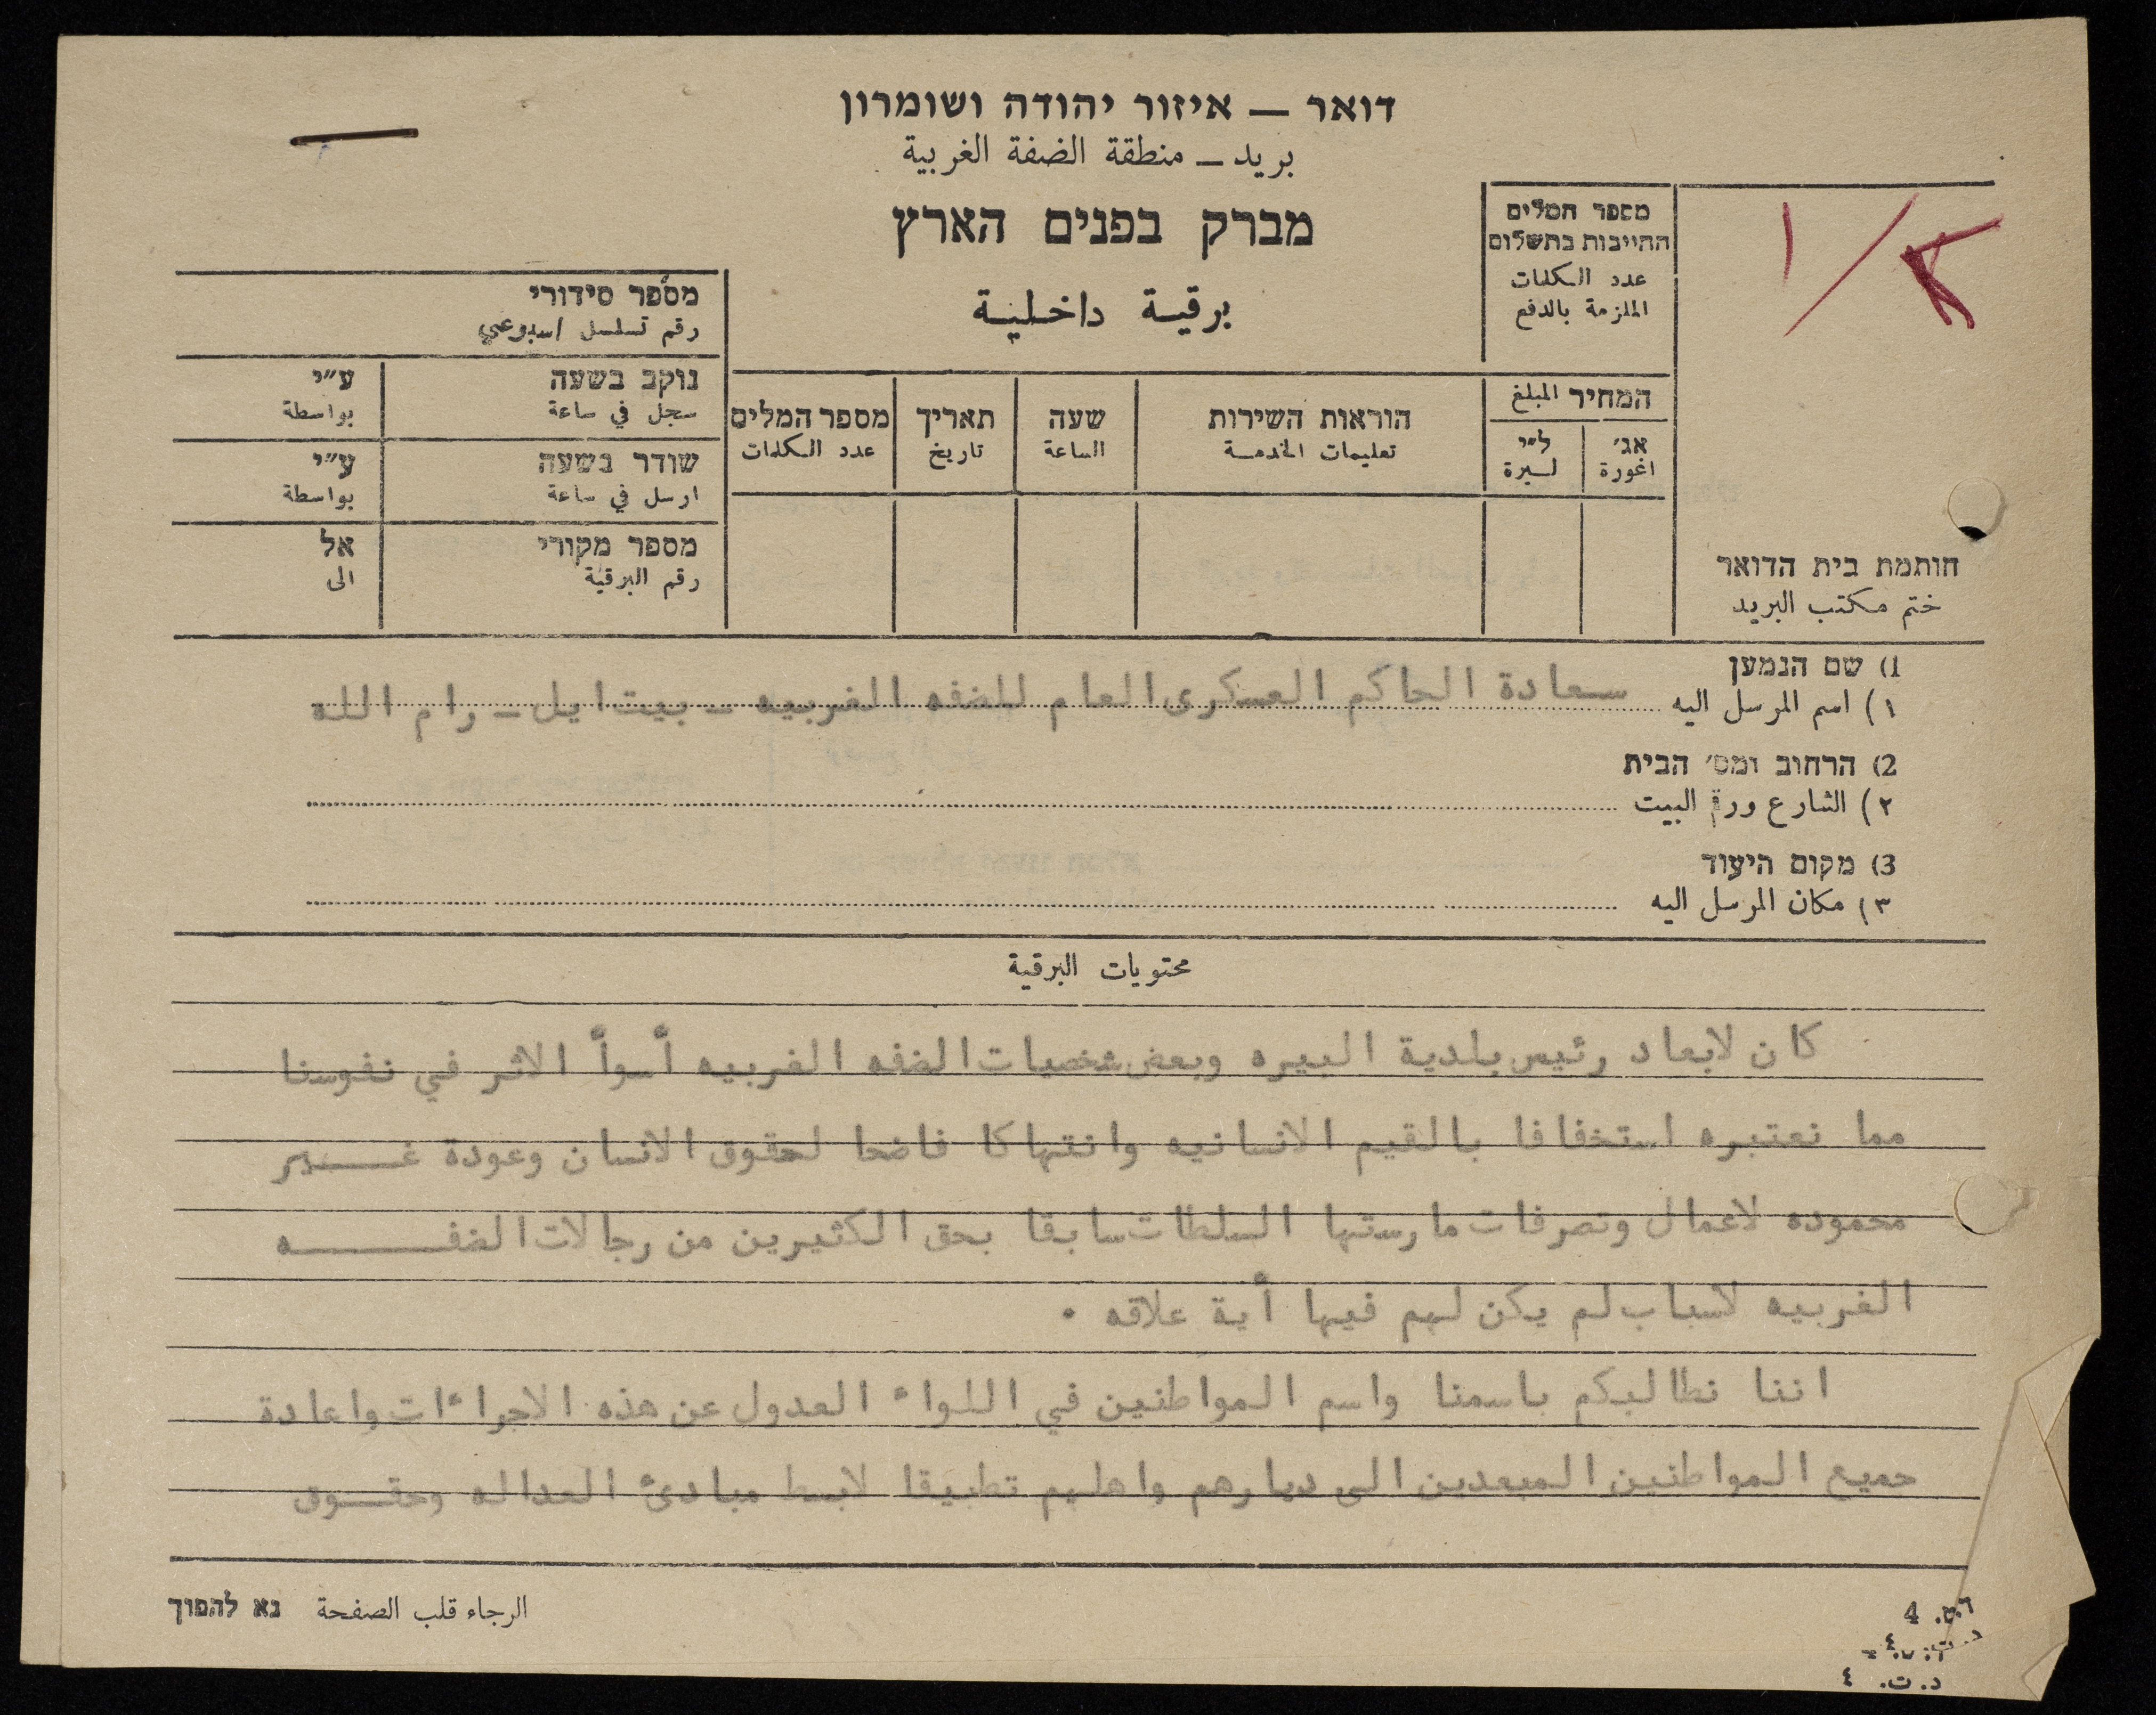 דואר — איזור יהודה ושומרון
بريد — منطقة الضفة الغربية
מברק בפנים הארץ
برقية داخلية
1/א
מספר המלים
החייבות בתשלום
عدد الكلمات
الملزمة بالدفع
מספר סידורי
رقم تسلسل اسبوعي
נוקב בשעה ע״י
سجل في ساعة بواسطة
שודר בשעה ע״י
ارسل في ساعة بواسطة
מספר מקורי אל
رقم البرقية الى
המחיר المبلغ
אג׳ ל״י
اغورة ليرة
הוראות השירות
تعليمات الخدمة
שעה
الساعة
תאריך
تاريخ
מספר המלים
عدد الكلمات
חותמת בית הדואר
ختم مكتب البريد
1) שם הנמען
١) اسم المرسل اليه سعادة الحاكم العسكرى العام للضفه الغربيه – بيت ايل – رام الله
2) הרחוב ומס׳ הבית
٢) الشارع ورقم البيت
3) מקום היעוד
٣) مكان المرسل اليه
محتويات البرقية
كان لابعاد رئيس بلدية البيره وبعض شخصيات الضفه الغربيه أسوأ الاثر في نفوسنا
مما نعتبره استخفافا بالقيم الانسانيه وانتهاكا فاضحا لحقوق الانسان وعودة غـــير
محموده لاعمال وتصرفات مارستها السلطات سابقا بحق الكثيرين من رجالات الضفـــــه
الغربيه لاسباب لم يكن لهم فيها أية علاقه .
اننا نطالبكم باسمنا واسم المواطنين في اللواء العدول عن هذه الاجراءات واعادة
جميع المواطنين المبعدين الى ديارهم واهلهم تطبيقا لابسط مبادئ العداله وحقـــوق
الرجاء قلب الصفحة נא להפוך
ד.ט. 4
د. ت. ٤
د. ت. ٤